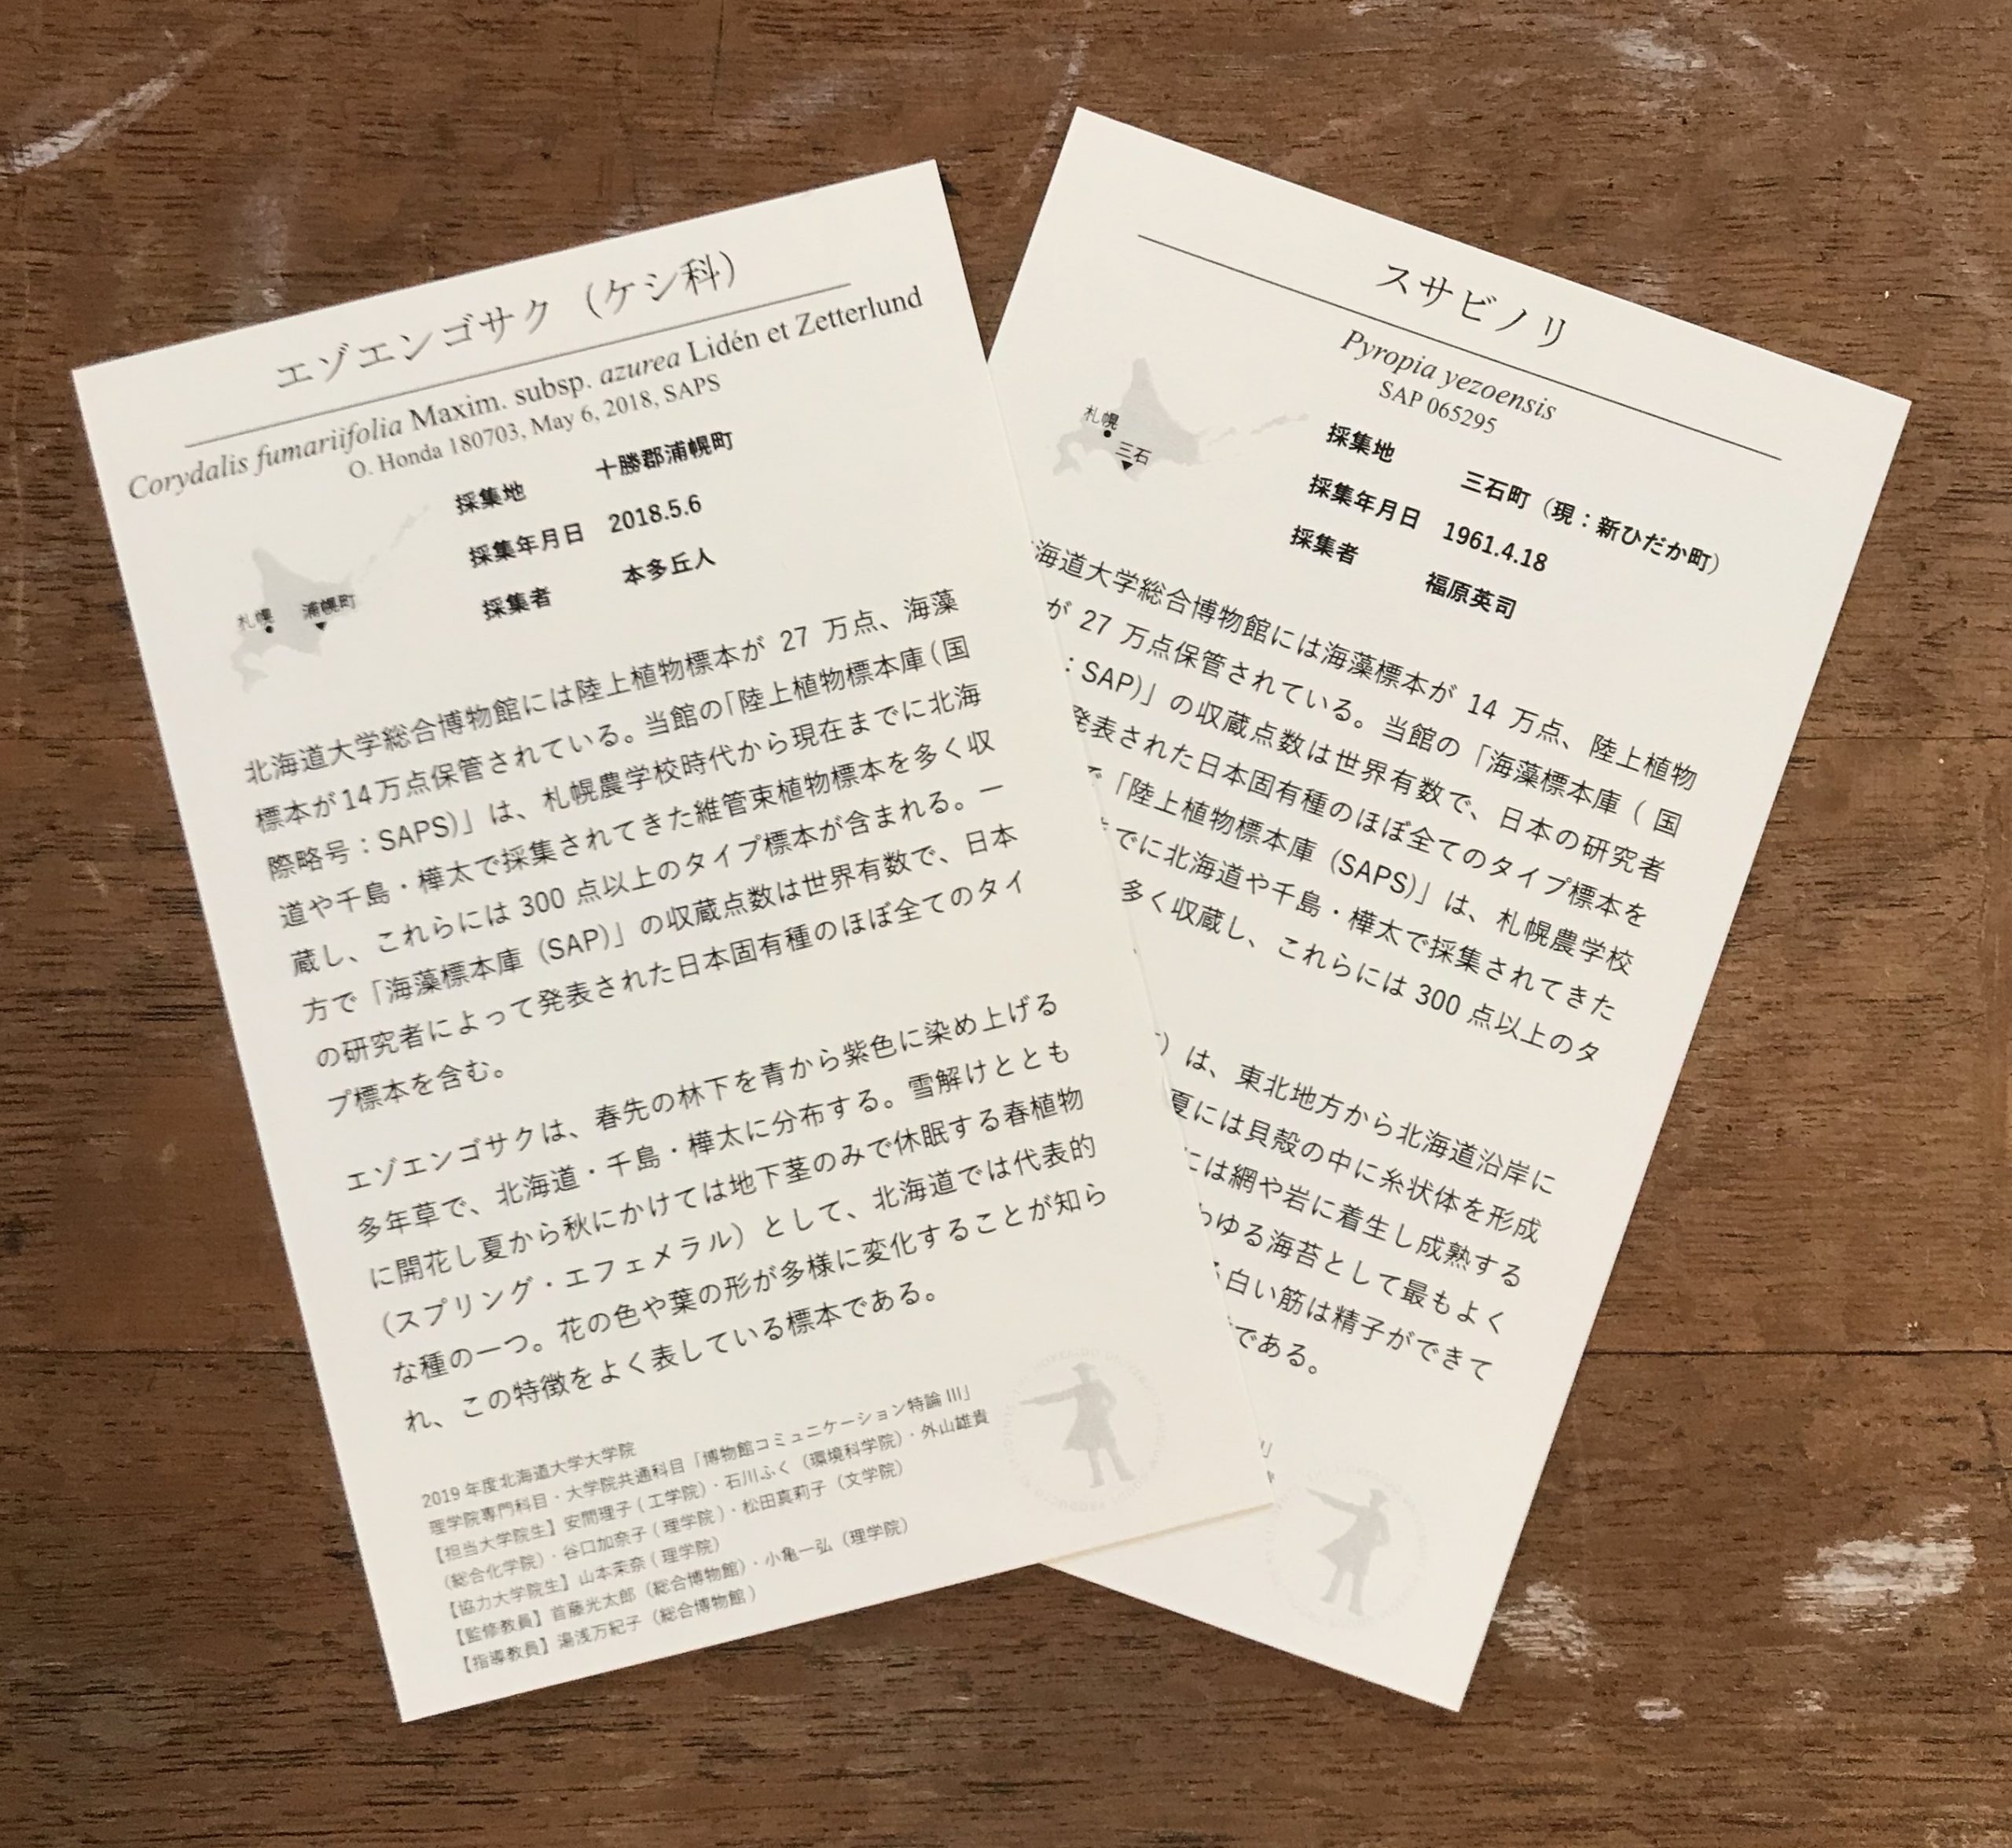 エゾエンゴサク（ケシ科）
Corydalis fumariifolia Maxim. subsp. azurea Lidén et Zetterlund
O. Honda 180703, May 6, 2018, SAPS
札幌 浦幌町
採集地 十勝郡浦幌町
採集年月日 2018.5.6
採集者 本多丘人
北海道大学総合博物館には陸上植物標本が 27 万点、海藻
標本が14万点保管されている。当館の「陸上植物標本庫（国
際略号：SAPS)」は、札幌農学校時代から現在までに北海
道や千島・樺太で採集されてきた維管束植物標本を多く収
蔵し、これらには 300 点以上のタイプ標本が含まれる。一
方で「海藻標本庫（SAP)」の収蔵点数は世界有数で、日本
の研究者によって発表された日本固有種のほぼ全てのタイ
プ標本を含む。
エゾエンゴサクは、春先の林下を青から紫色に染め上げる
多年草で、北海道・千島・樺太に分布する。雪解けととも
に開花し夏から秋にかけては地下茎のみで休眠する春植物
（スプリング・エフェメラル）として、北海道では代表的
な種の一つ。花の色や葉の形が多様に変化することが知ら
れ、この特徴をよく表している標本である。
2019 年度北海道大学大学院
理学院専門科目・大学院共通科目「博物館コミュニケーション特論 III」
【担当大学院生】安間理子（工学院）・石川ふく（環境科学院）・外山雄貴
（総合化学院）・谷口加奈子（理学院）・松田真莉子（文学院）
【協力大学院生】山本茉奈（理学院）
【監修教員】首藤光太郎（総合博物館）・小亀一弘（理学院）
【指導教員】湯浅万紀子（総合博物館）
スサビノリ
Pyropia yezoensis
SAP 065295
札幌
三石
採集地 三石町（現：新ひだか町）
採集年月日 1961.4.18
採集者 福原英司
海道大学総合博物館には海藻標本が 14 万点、陸上植物
が 27 万点保管されている。当館の「海藻標本庫（ 国
：SAP)」の収蔵点数は世界有数で、日本の研究者
発表された日本固有種のほぼ全てのタイプ標本を
で「陸上植物標本庫（SAPS)」は、札幌農学校
までに北海道や千島・樺太で採集されてきた
多く収蔵し、これらには 300 点以上のタ
）は、東北地方から北海道沿岸に
夏には貝殻の中に糸状体を形成
には網や岩に着生し成熟する
わゆる海苔として最もよく
白い筋は精子ができて
である。